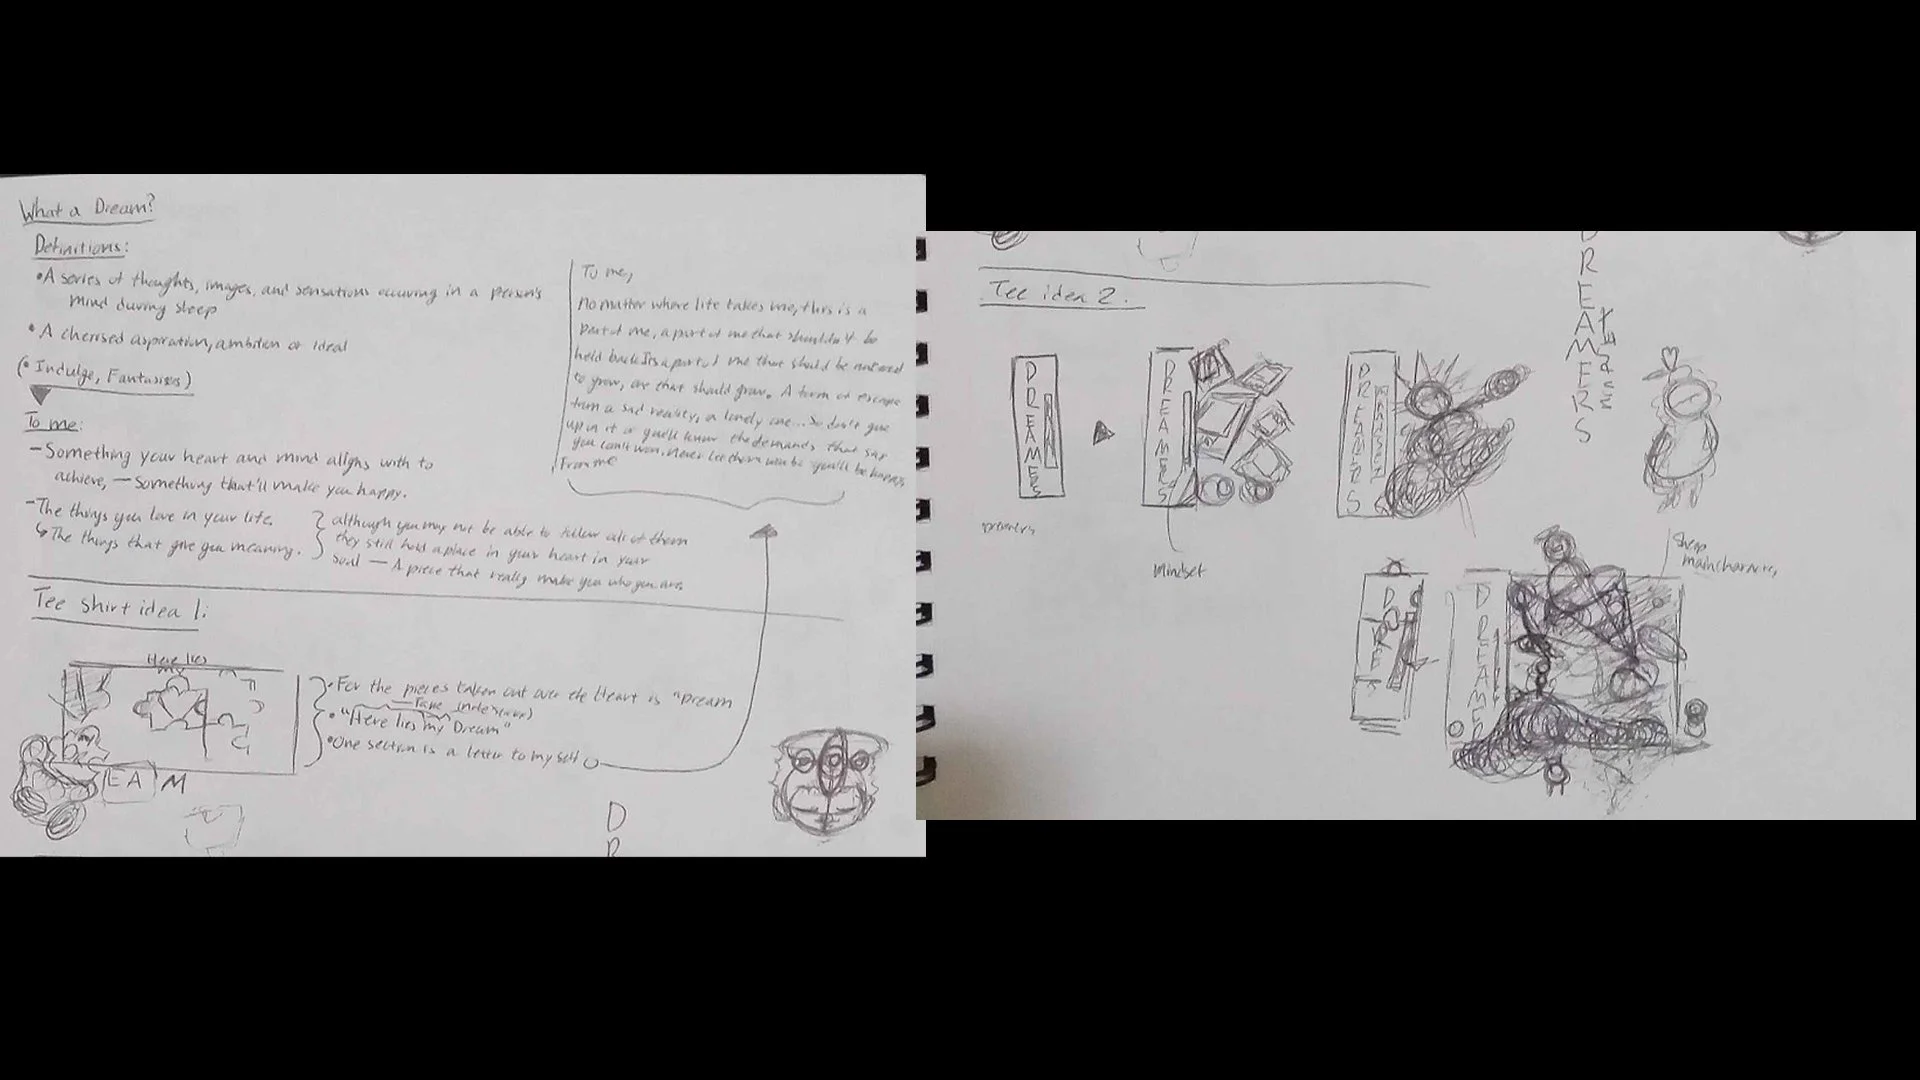 What a Dream?
Definitions:
•A series of thoughts, images, and sensations occuring in a person's
mind during sleep
•A cherised aspiration, ambition or ideal
(•Indulge, Fantasizes)
To me:
-Something your heart and mind aligns with to
achieve, — Something that'll make you happy.
-The things you love in your life.
The things that give you meaning.
although you may not be able to follow all of them
they still hold a place in your heart in your
soul — A piece that really make you who you are.
To me,
No matter where life takes me, this is a
part of me, a part of me that shouldn't be
held back Its a part of me that should be
to grow, that should grow. A form of escape
from a sad reality, a lonely one... So don't give
up on it or you'll know the demands that say
you can't won. Never let them
From me
Tee shirt idea 1:
Here lies
my
EAM
•For the pieces taken out over the Heart is "Dream
•"Here lies my Dream"
•One section is a letter to my self
D
R
Tee idea 2.
DREAMERS
DREAMERS
DREAMERS
DREAMERS
Mindset
Sheep
main
D
RE
S
DREAMER